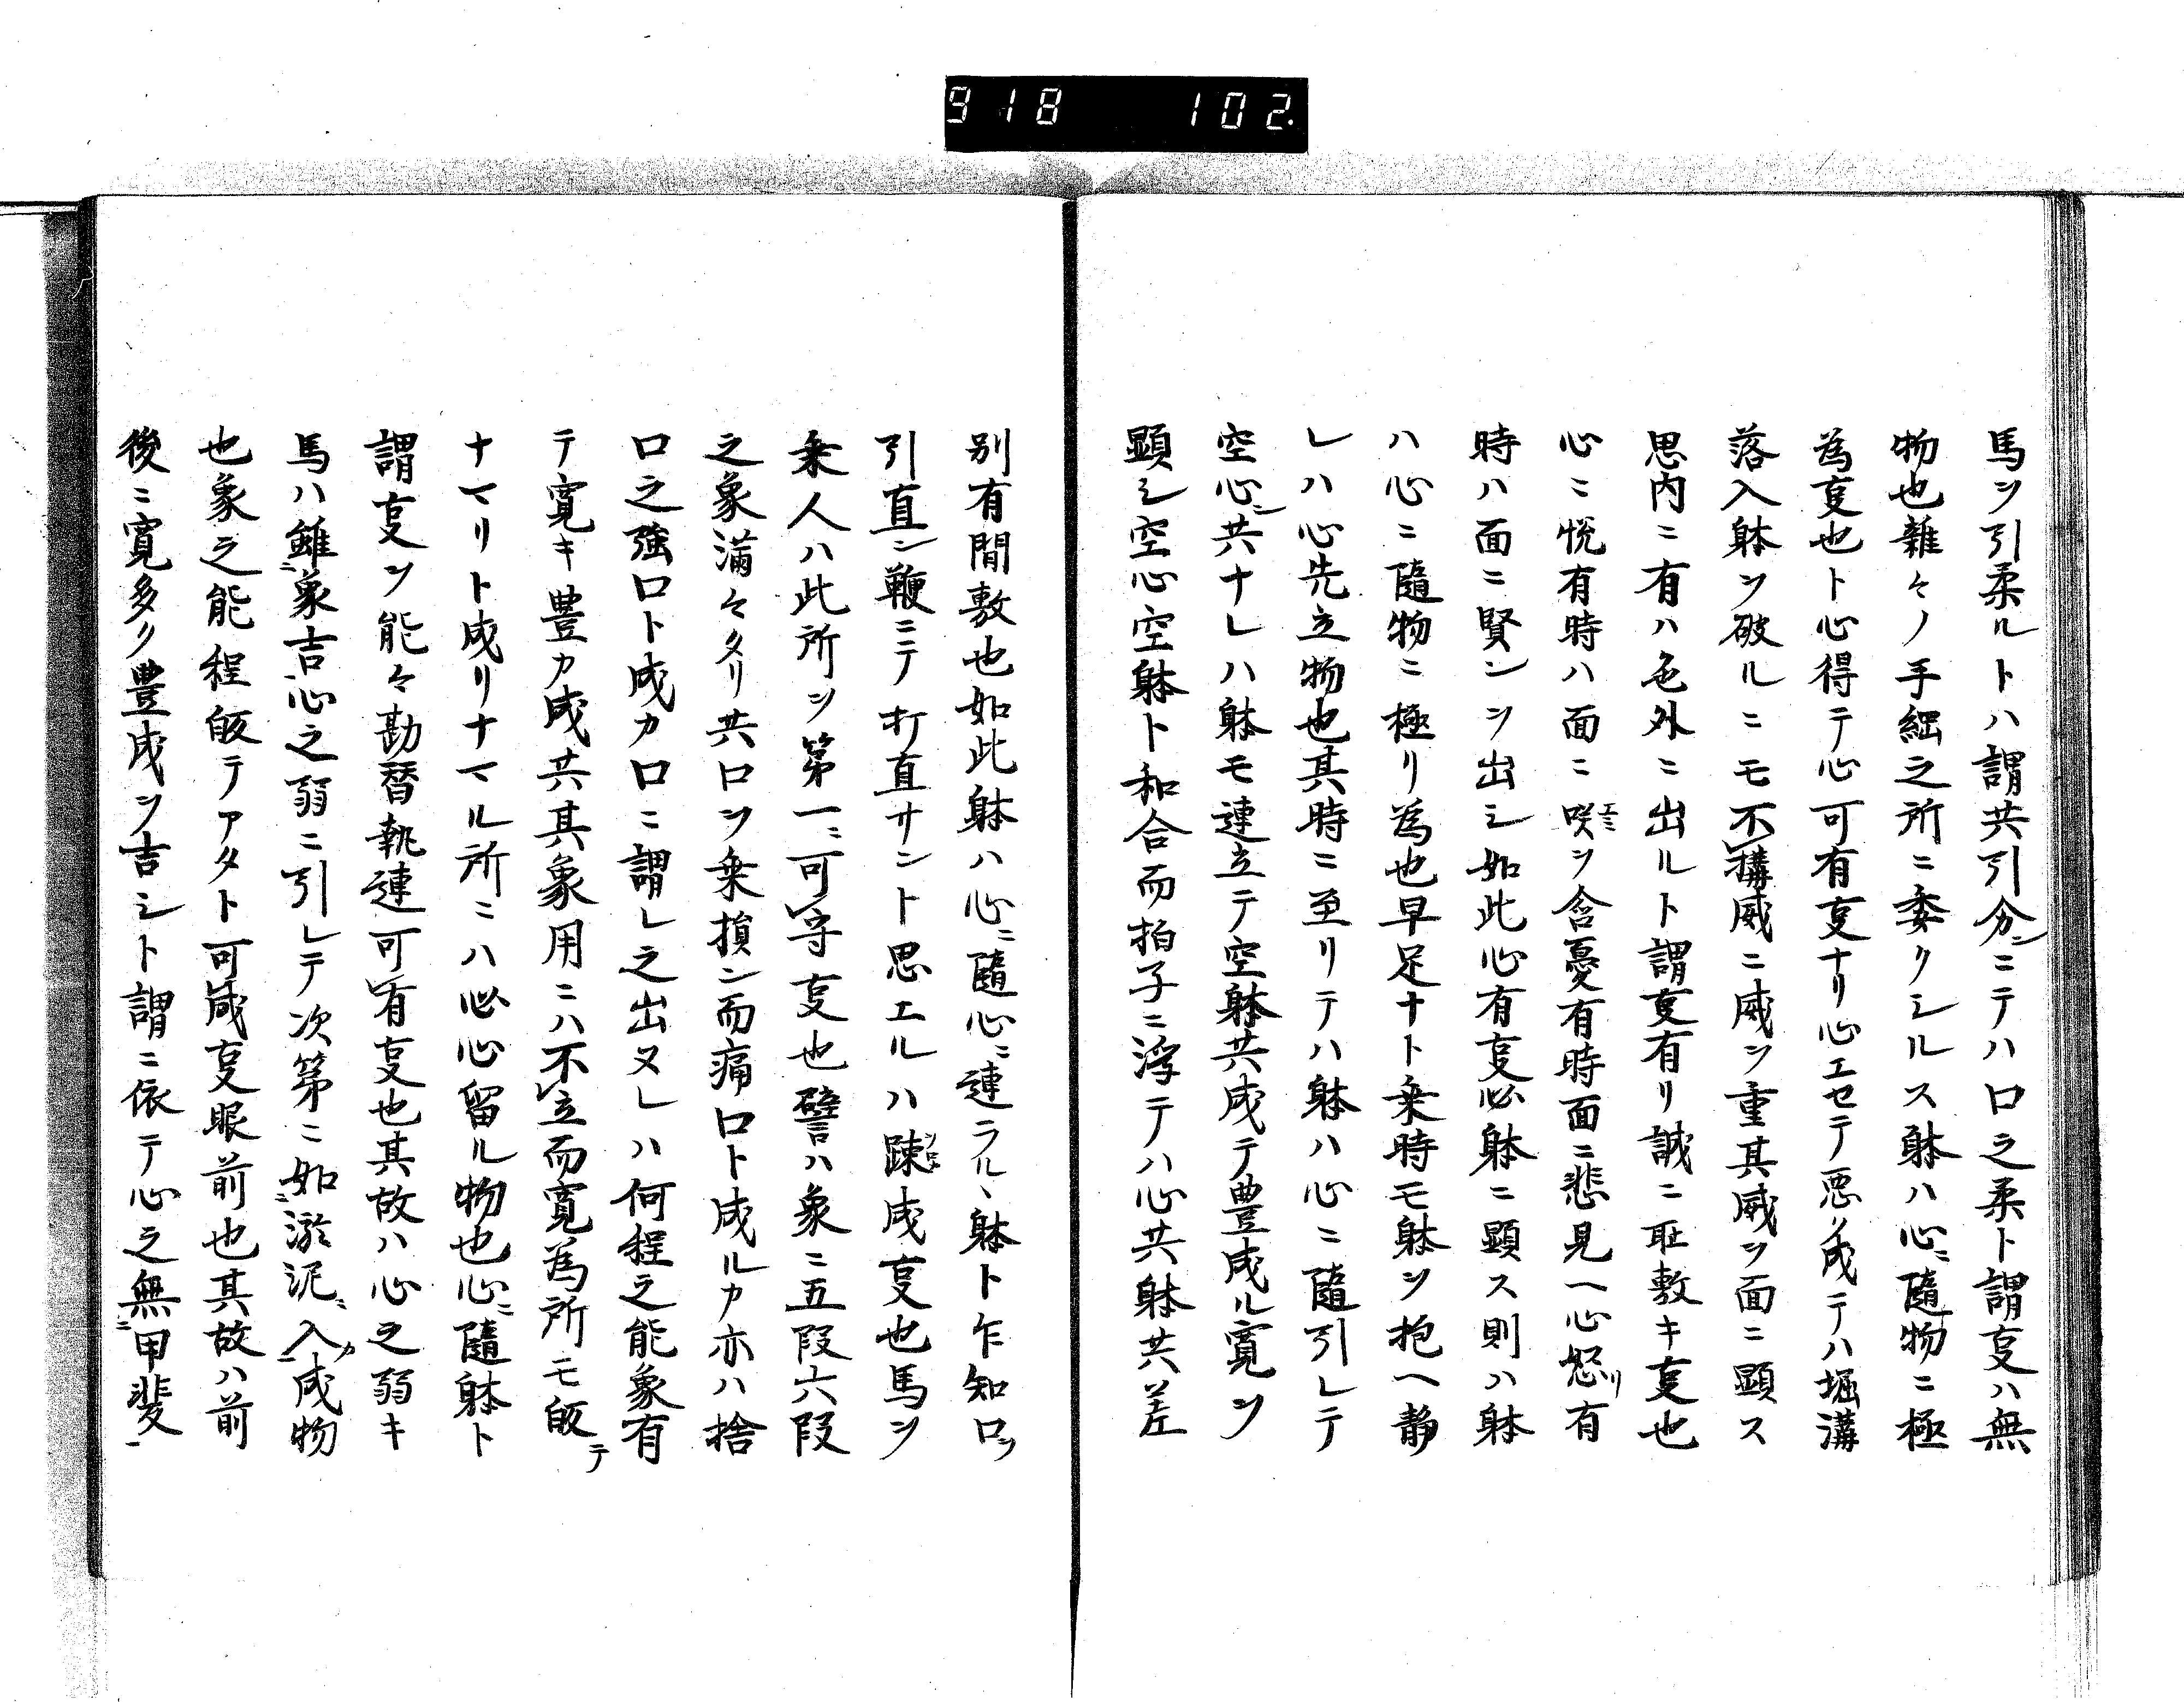 918 102.
馬ヲ引柔ルトハ謂共引分ニテハ口之柔ト謂㕝ハ無
物也雑々ノ手綱之所ニ委クシルス躰ハ心ニ随物ニ極
為㕝也ト心得テ心可有㕝ナリ心エセテ悪ク成テハ堀溝
落入躰ヲ破ルニモ不構威ニ威ヲ重其威ヲ面ニ顕ス
思内ニ有ハ色外ニ出ルト謂㕝有リ誠ニ耻敷キ㕝也
心ニ悦有時ハ面ニ咲ヲ含憂有時面ニ悲見ヘ心怒リ有
時ハ面ニ賢ンヲ出シ如此心有㕝必躰ニ顕ス則ハ躰
ハ心ニ随物ニ極リ為也早足ナト乗時モ躰ヲ抱ヘ静
レハ心先立物也其時ニ至リテハ躰ハ心ニ随引レテ
空心ニ共ナレハ躰モ連立テ空躰共成テ豊成ル寛ヲ
顕シ空心空躰ト和合而拍子ニ浮テハ心共躰共差
別有間敷也如此躰ハ心ニ随心ニ連ラルヽ躰ト乍知口ヲ
引直シ鞭ニテ打直サント思エルハ踈成㕝也馬ヲ
乗人ハ此所ヲ第一ニ可守㕝也譬ハ象ニ五段六段
之象満々タリ共口ヲ乗損シ而痛口ト成ルカ亦ハ捨
口之強口ト成カ口ニ謂レ之出ヌレハ何程之能象有
テ寛キ豊カ成共其象用ニハ不立而寛為所モ皈テ
ナマリト成リナマル所ニハ必心留ル物也心ニ随躰ト
謂㕝ヲ能々勘替執連可有㕝也其故ハ心之弱キ
馬ハ雖象吉心之弱ニ引レテ次第ニ如淤泥ニ入カ成物
也象之能程皈テアタト可成㕝眼前也其故ハ前
後ニ寛多ク豊成ヲ吉シト謂ニ依テ心之無甲斐